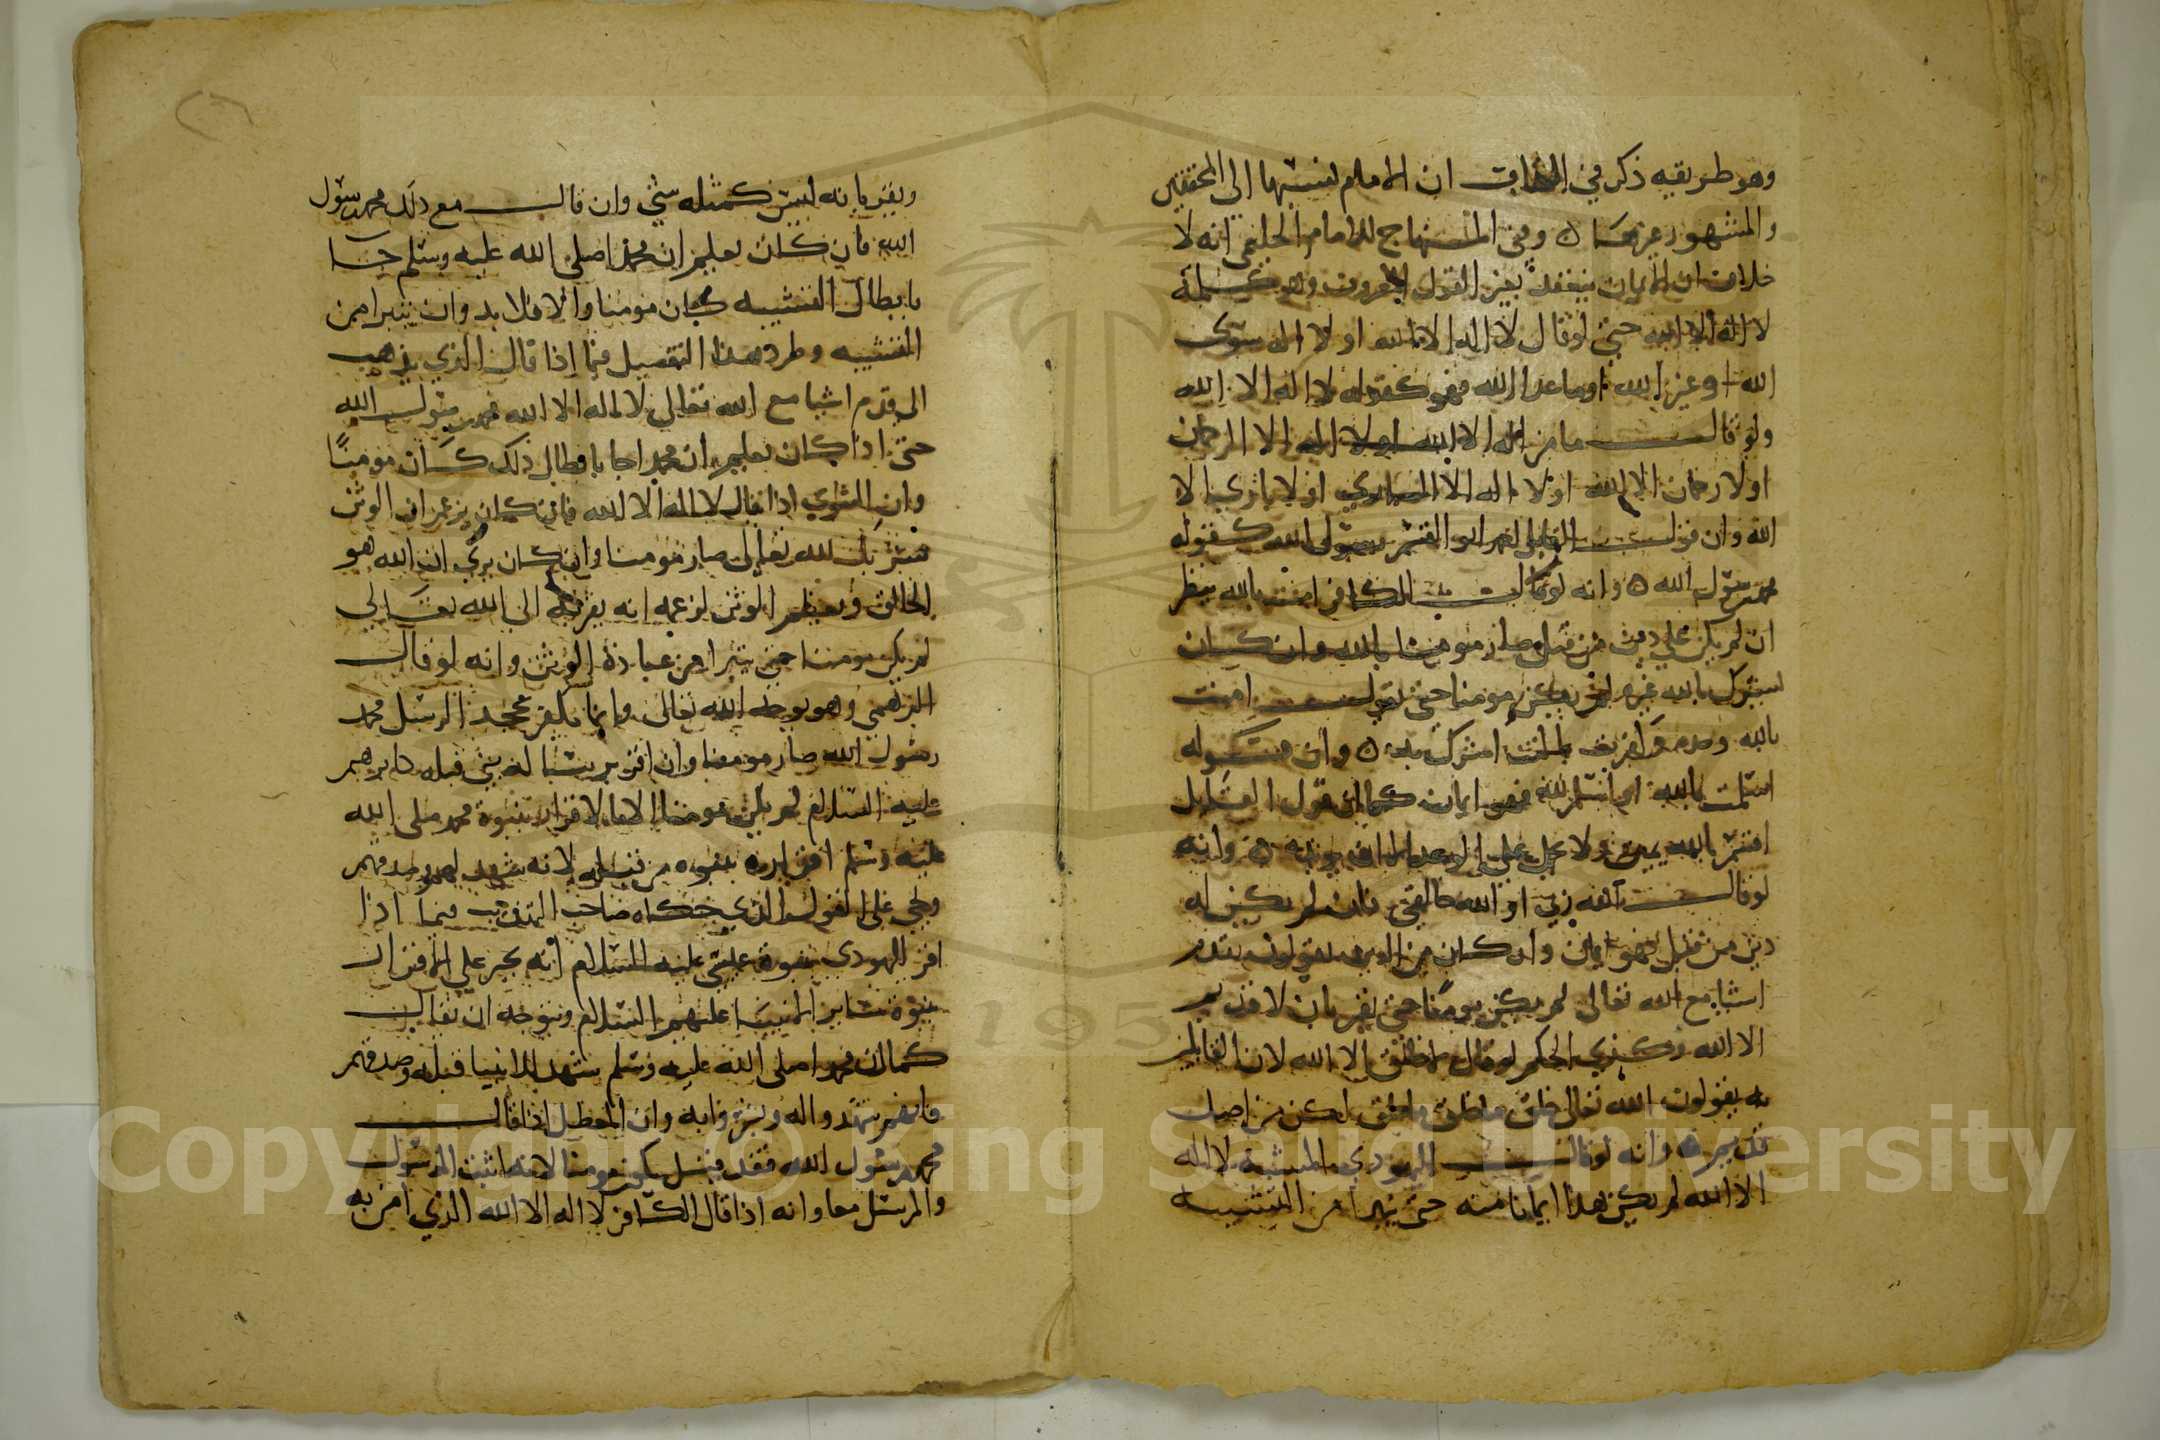 وهو طريقيه ذكر في ان الامام نسبها الى المحققين
والمشهور وفي المنهاج للامام الحليمي انه لا
خلاف ان الايمان ينعقد بغير القول المعروف وهو كلمة
لا اله الا الله حتى لو قال لا اله الا الله او لا اله سوى
الله او غير الله او ما عدا الله فهو كقوله لا اله الا الله
ولو قال ما من اله الا الله او لا اله الا الرحمن
او لا رحمان الا الله او لا اله الا الباري او لا باري الا
الله وان قول القايل احمد ابو القسم رسول الله كقوله
محمد رسول الله ه وانه لو قال الكافر امنت بالله ينظر
ان لم يكن على دين من قبل صار مومنا بالله وان كان
يشرك بالله غيره لم يكن مومنا حتى يقول امنت
بالله وحده وكفرت بما كنت اشرك به ه وان قوله
اسلمت بالله او اسلم لله فهو ايمان كما ان قول القايل
اقسم بالله يمين ولا يحمل على الوعد الا ان يريده ه وانه
لو قال الله ربي او الله خالقي فان لم يكن له
دين من قبل فهو ايمان وان كان من الذين يقولون بقدم
اشيا مع الله تعالى لم يكن مومنا حتى يقر بان لا قديم
الا الله وكذى الحكم لو قال لا خالق الا الله لان القايلين
به يقولون الله تعالى خلق ما خلق لكن من اصل
قديم ه وانه لو قال اليهودي المشبه لا اله
الا الله لم يكن هذا ايمانا منه حتى يتبرا من التشبيه
٢٦
ويقر بانه ليس كمثله شي وان قال مع ذلك محمد رسول
الله فان كان يعلم ان محمدا صلى الله عليه وسلم جا
بابطال التشبيه كان مومنا والا فلا بد وان يتبرا من
التشبيه وطرد هذا التفصيل فيما اذا قال الذي يذهب
الى قدم اشيا مع الله تعالى لا اله الا الله محمد رسول الله
حتى اذا كان يعلم ان محمدا جا بابطال ذلك كان مومنا
وان الثنوي اذا قال لا اله الا الله فان كان يزعم ان الوثن
شريك لله تعالى صار مومنا وان كان يرى ان الله هو
الخالق ويعظم الوثن لزعمه انه يقربه الى الله تعالى
لم يكن مومنا حتى يتبرا من عبادة الوثن وانه لو قال
البرهمي وهو يوحد الله تعالى وانما يكفر بجحد الرسل محمد
رسول الله صار مومنا وان اقر برسالة نبي قبله كابرهيم
عليه السلام لم يكن مومنا لان الاقرار بنبوة محمد صلى الله
عليه وسلم اقرار بنبوة من قبله لانه شهد لهم وصدقهم
ويجي على القول الذي حكاه صاحب التهذيب فيما اذا
اقر اليهودي بنبوة عيسى عليه السلام انه يجبر على الاقرار
بنبوة ساير الانبيا عليهم السلام وتوجه ان يقال
كما ان محمدا صلى الله عليه وسلم شهد للانبيا قبله وصدقهم
فانهم شهدوا له وبشروا به وان المعطل اذا قال
محمد رسول الله فقد قيل يكون مومنا لانه اثبت الرسول
والمرسل معا وانه اذا قال الكافر لا اله الا الله الذي امن به
Copyright © King Saud University